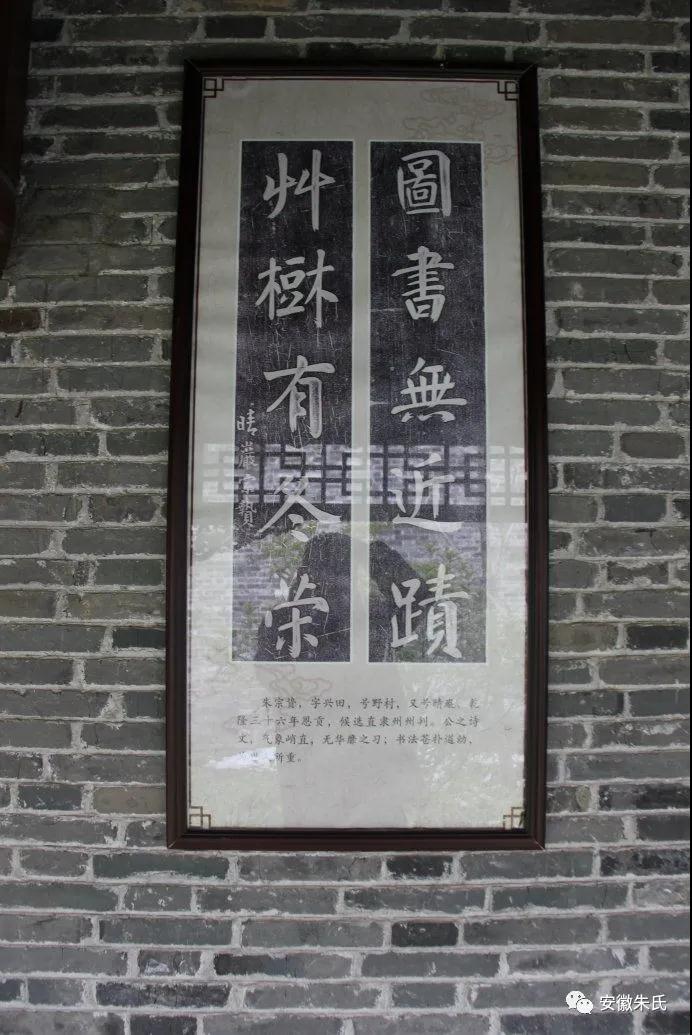 圖書無近蹟
艸樹有冬荣
晴巖宗贄
朱宗贽，字兴田，号野村，又号晴巖。乾
隆三十六年恩贡，候选直隶州州判。公之诗
文，气象峭直，无华靡之习；书法苍朴遒劲，
所重。
安徽朱氏